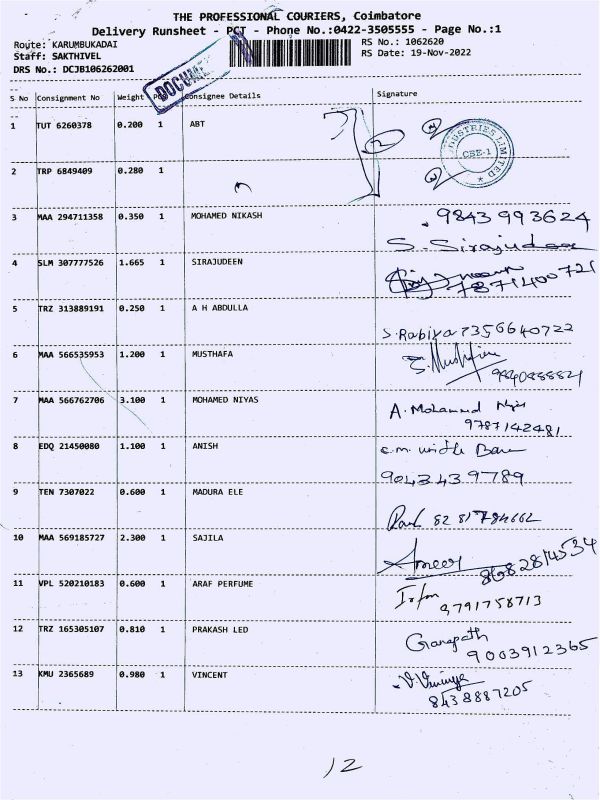 THE PROFESSIONAL COURIERS, Coimbatore
Delivery Runsheet - PCT - Phone No.:0422-3505555 - Page No.:1
Route: KARUMBUKADAI RS No.: 1062620
Staff: SAKTHIVEL RS Date: 19-Nov-2022
DRS No.: DCJB106262001
S No Consignment No Weight Consignee Details Signature
1 TUT 6260378 0.200 1 ABT
INDUSTRIES LIMITED
CBE-1
2 TRP 6849409 0.280 1
3 MAA 294711358 0.350 1 MOHAMED NIKASH 9843993624
S. Sirajudeen
4 SLM 307777526 1.665 1 SIRAJUDEEN 7871400721
5 TRZ 313889191 0.250 1 A H ABDULLA S. Rabiya 7356640722
6 MAA 566535953 1.200 1 MUSTHAFA
7 MAA 566762706 3.100 1 MOHAMED NIYAS A. Mohammed
9787142481
8 EDQ 21450080 1.100 1 ANISH
9043439789
9 TEN 7307022 0.600 1 MADURA ELE
10 MAA 569185727 2.300 1 SAJILA Ameer
8682814534
11 VPL 520210183 0.600 1 ARAF PERFUME Irfan
9791758713
12 TRZ 165305107 0.810 1 PRAKASH LED Ganapath
9003912365
13 KMU 2365689 0.980 1 VINCENT
8438887205
12